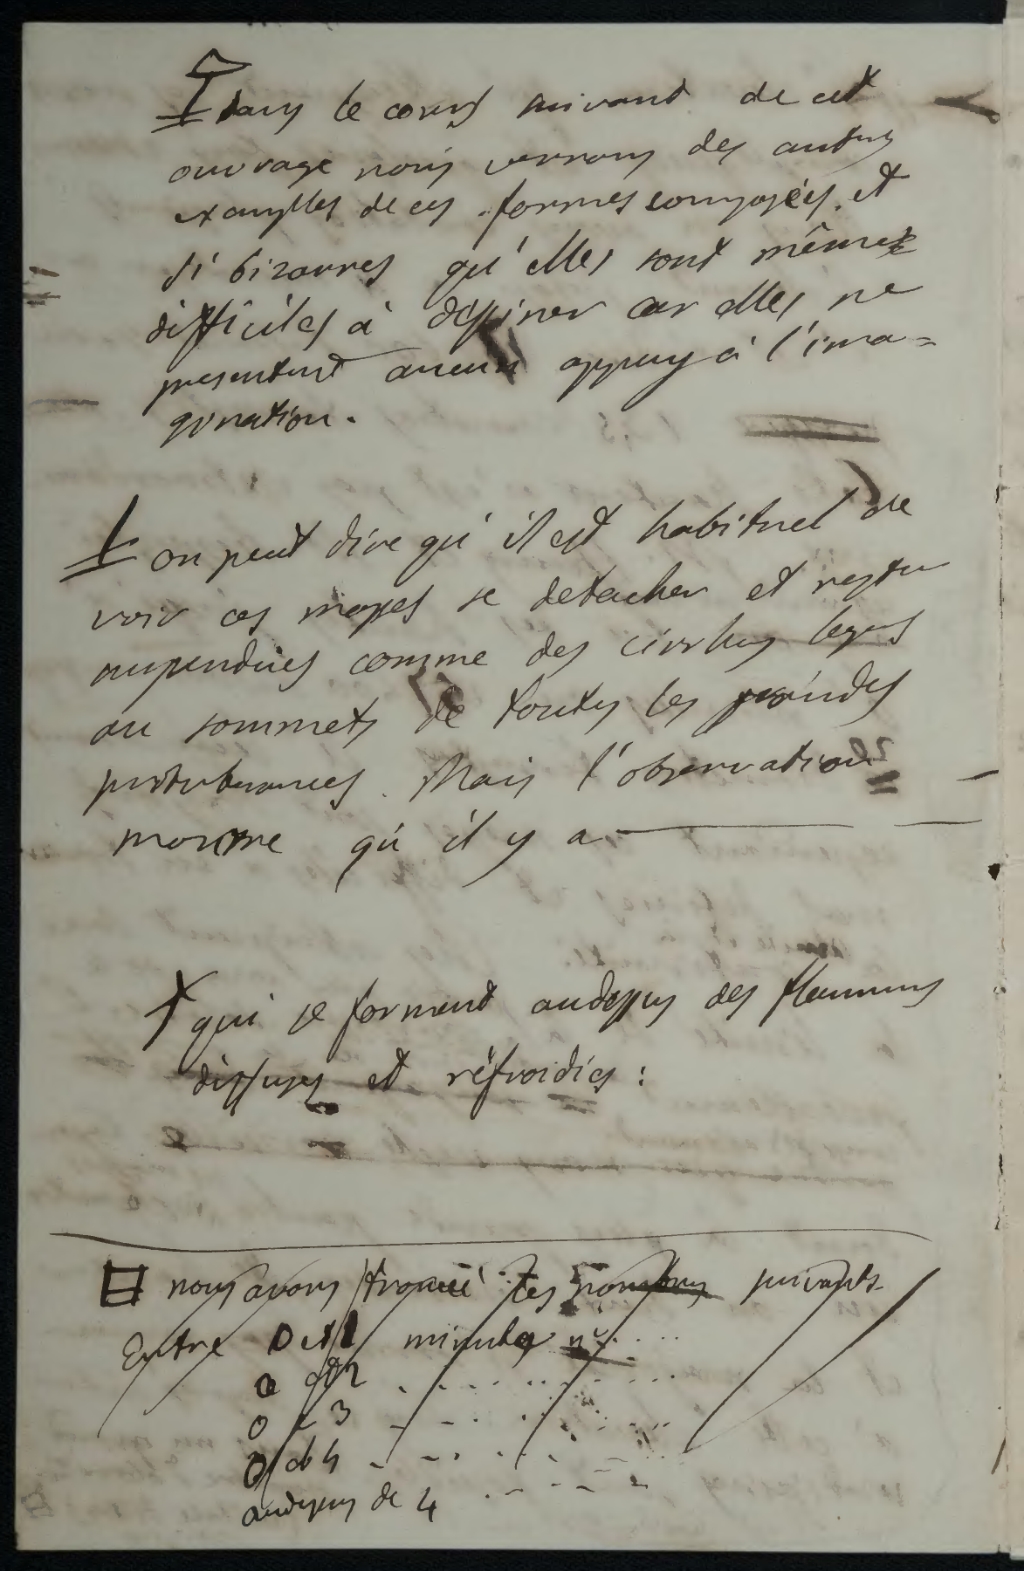 dans le cours suivant de cet
ouvrage nous verrons des autres
examples de ces formes composées, et
si bizarres qu'elles sont même
difficiles à dessiner car elles ne
presentent aucun appuy à l'ima=
gination.
on peut dire qu'il est habituel de
voir ces masses se detacher et rester
suspendues comme des cirrhus legers
au sommets de toutes les grandes
protuberances. Mais l'observation
montre qu'il y a
qui se forment audessus des flammes
diffuses et réfroidies :
nous avons trouvé les nombres suivants
Entre 0 et 1 minutes n°....
0 et 2
0 et 3
0 et 4
audessus de 4